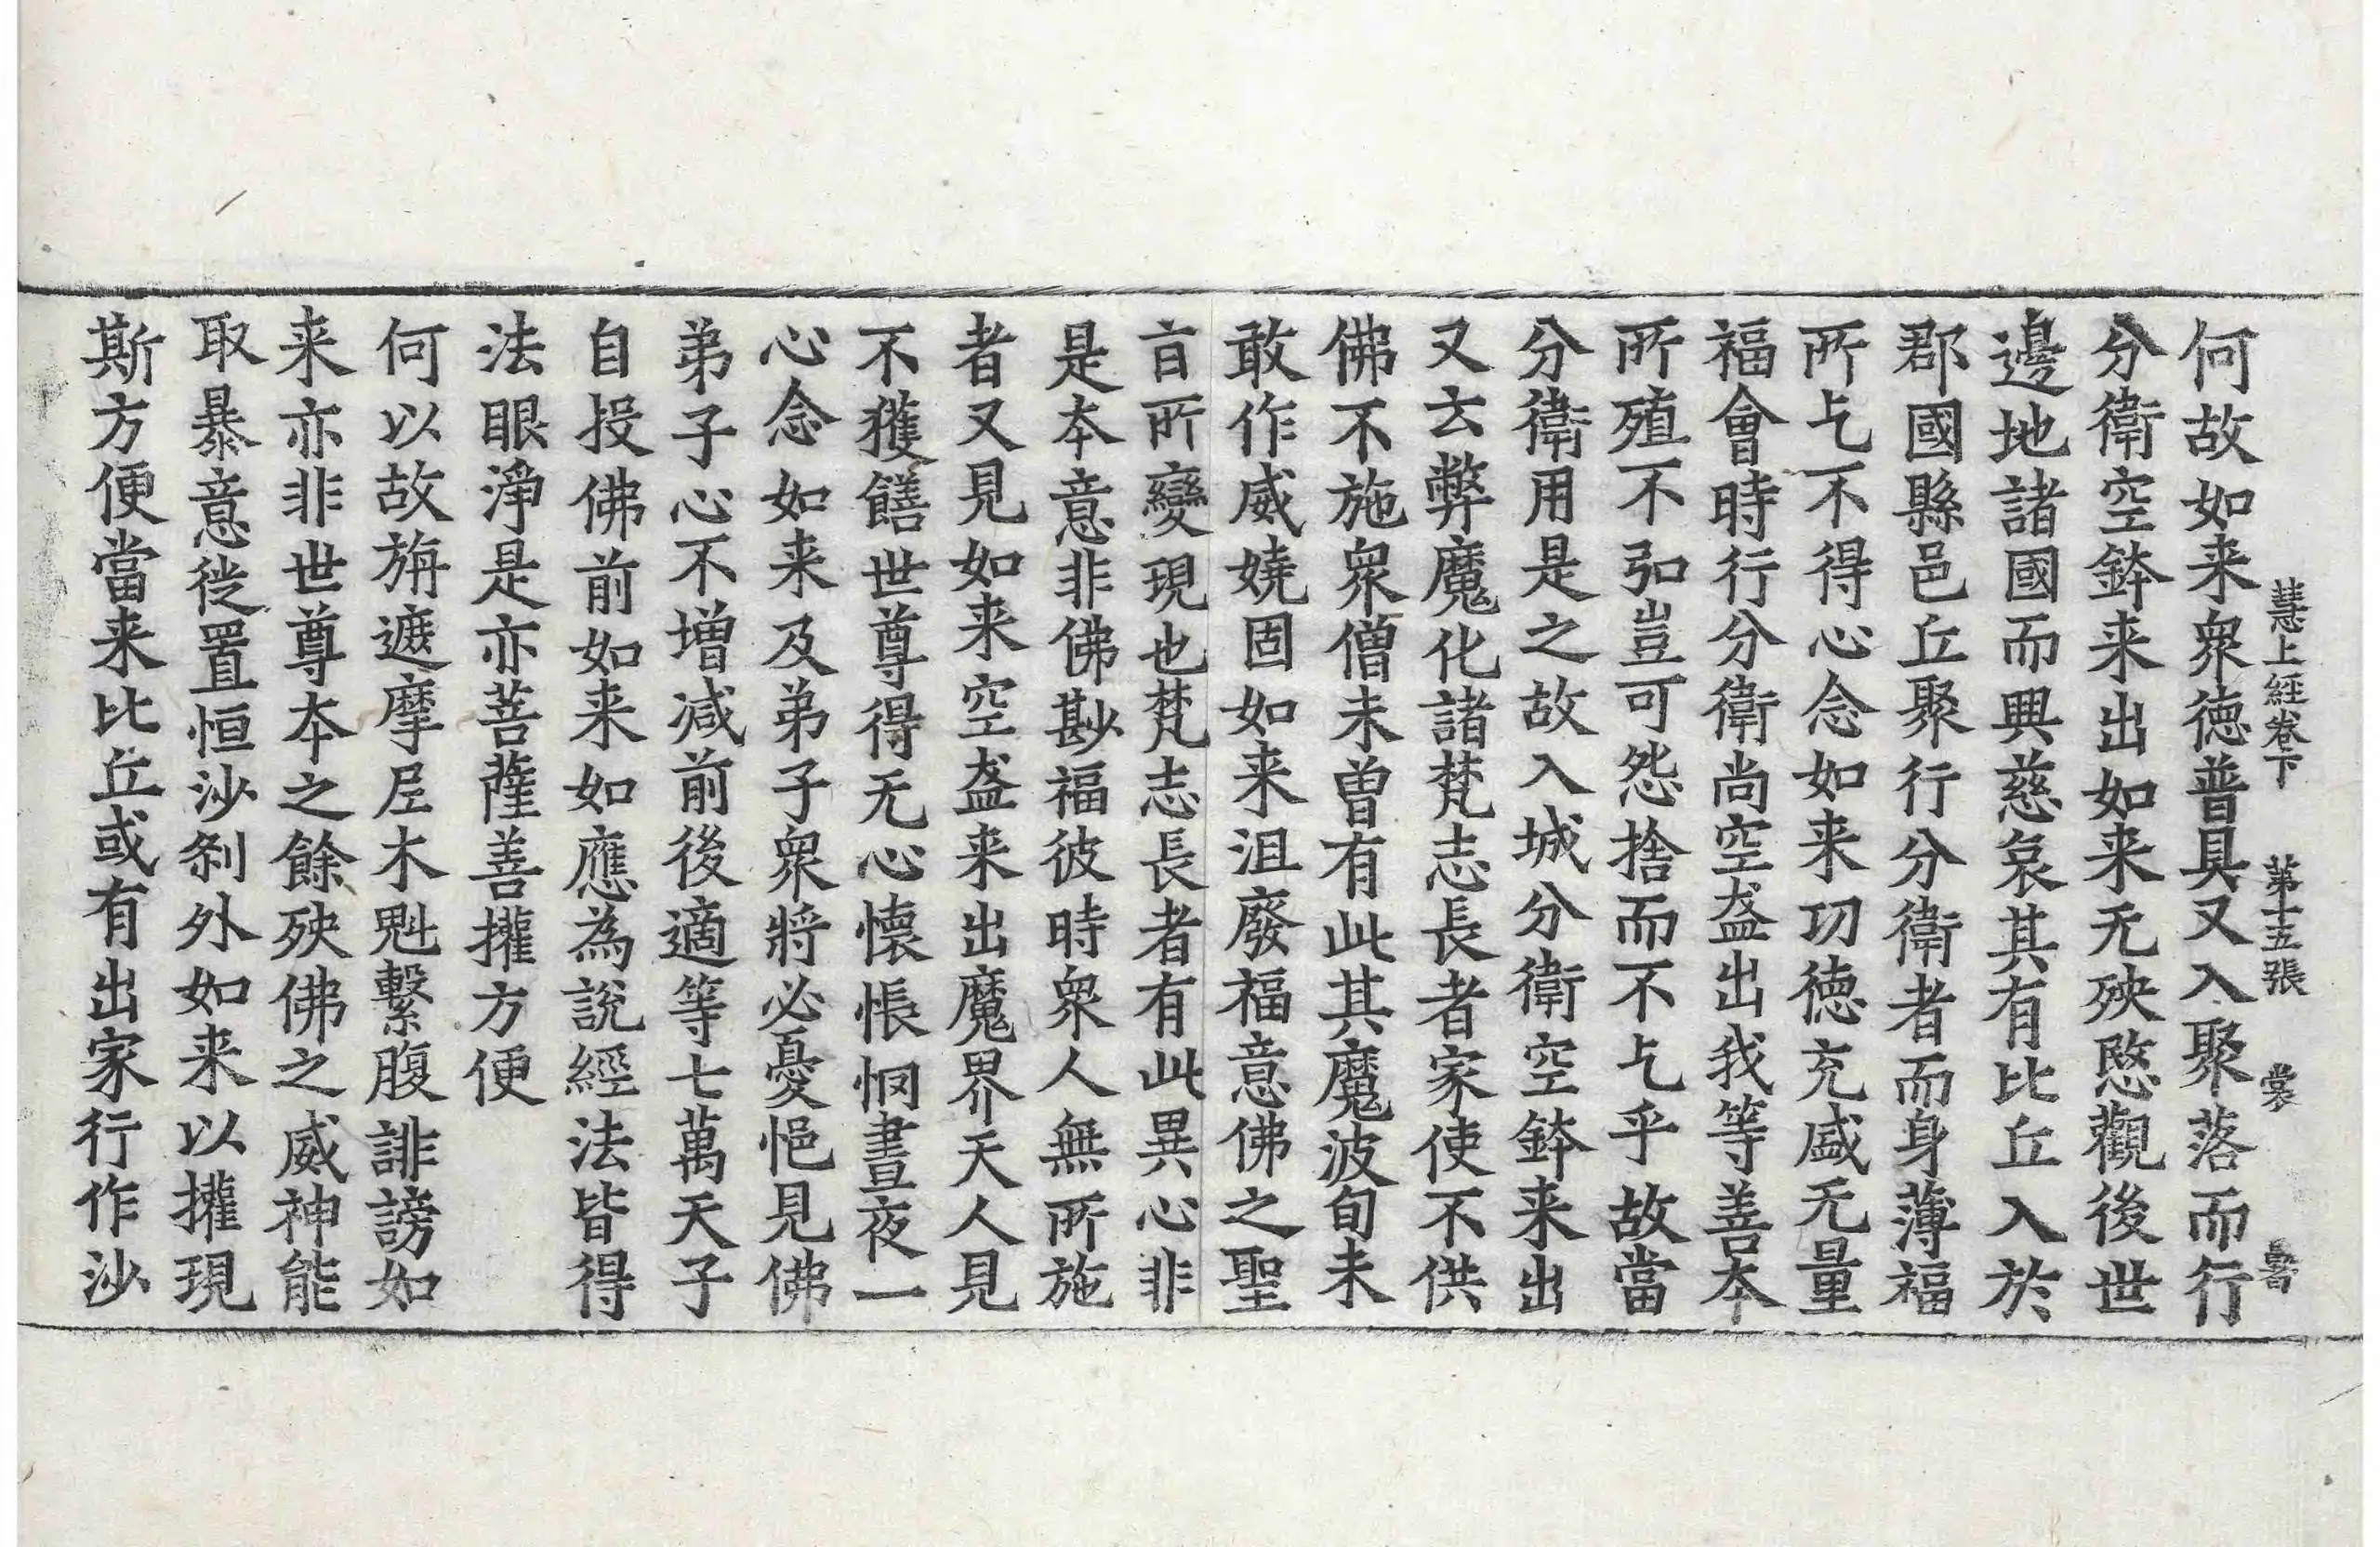 慧上經卷下　第十五張　裳
何故如来衆徳普具又入聚落而行
分衛空鉢来出如来无殃愍觀後世
邊地諸國而興慈哀其有比丘入於
郡國縣邑丘聚行分衛者而身薄福
所乞不得心念如来功徳充盛无量
福會時行分衛尚空盋出我等善夲
所殖不弘豈可怨捨而不乞乎故當
分衛用是之故入城分衛空鉢来出
又去弊魔化諸梵志長者家使不供
佛不施衆僧未曽有此其魔波旬未
敢作威嬈固如来沮廢福意佛之聖
㫖所變現也梵志長者有此異心非
是夲意非佛尠福彼時衆人無所施
者又見如来空盋来出魔界天人見
不獲饍世尊得无心懐悵惘晝夜一
心念如来及弟子衆將必憂悒見佛
弟子心不增减前後適等七萬天子
自投佛前如来如應為說經法皆得
法眼淨是亦菩薩善攉方便
何以故旃遮摩𡰱木魁繫腹誹謗如
来亦非世尊夲之餘殃佛之威神能
取暴意徙置恒沙刹外如来以攉現
斯方便當来比丘或有出家行作沙